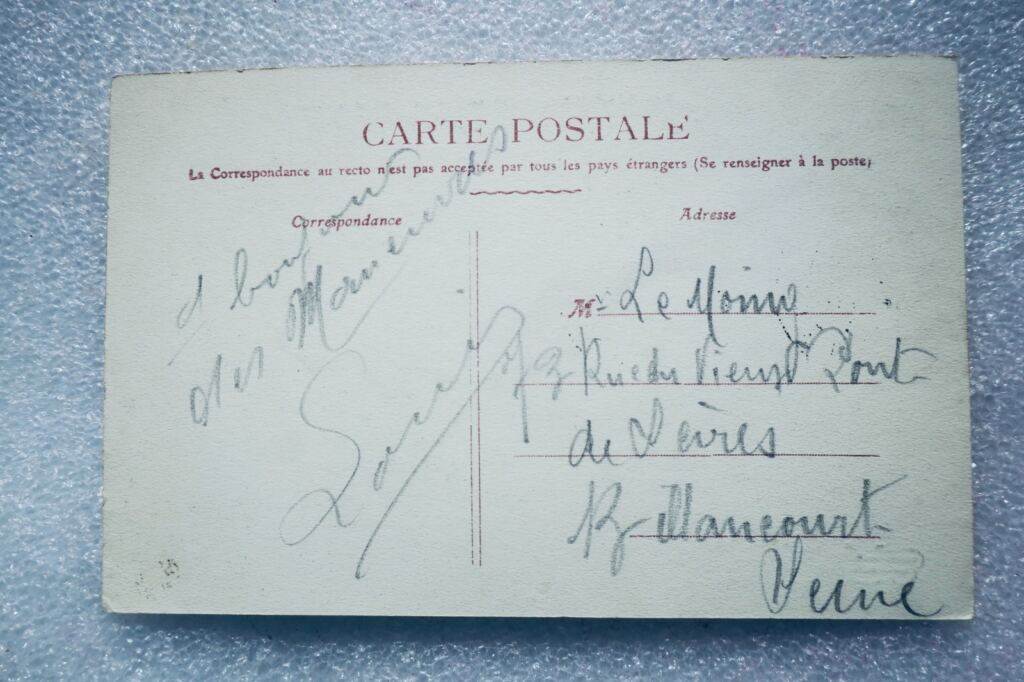 CARTE POSTALE
La Correspondance au recto n'est pas acceptée par tous les pays étrangers (Se renseigner à la poste)
Correspondance
Adresse
des Manœuvres
Louis
Mr Le Moing
73 Rue du Vieux Pont
de Sèvres
Billancourt
Seine